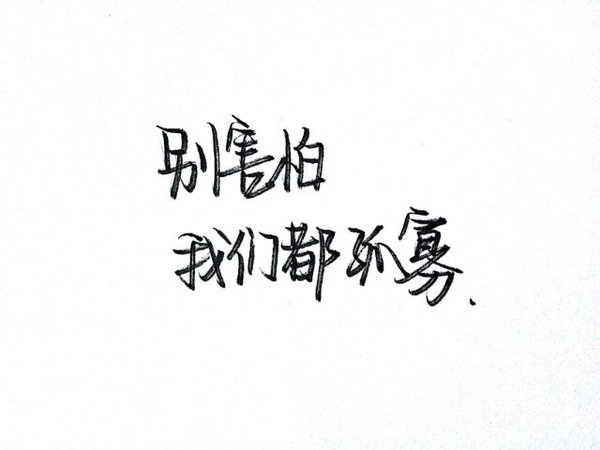 别害怕
我们都孤寡.